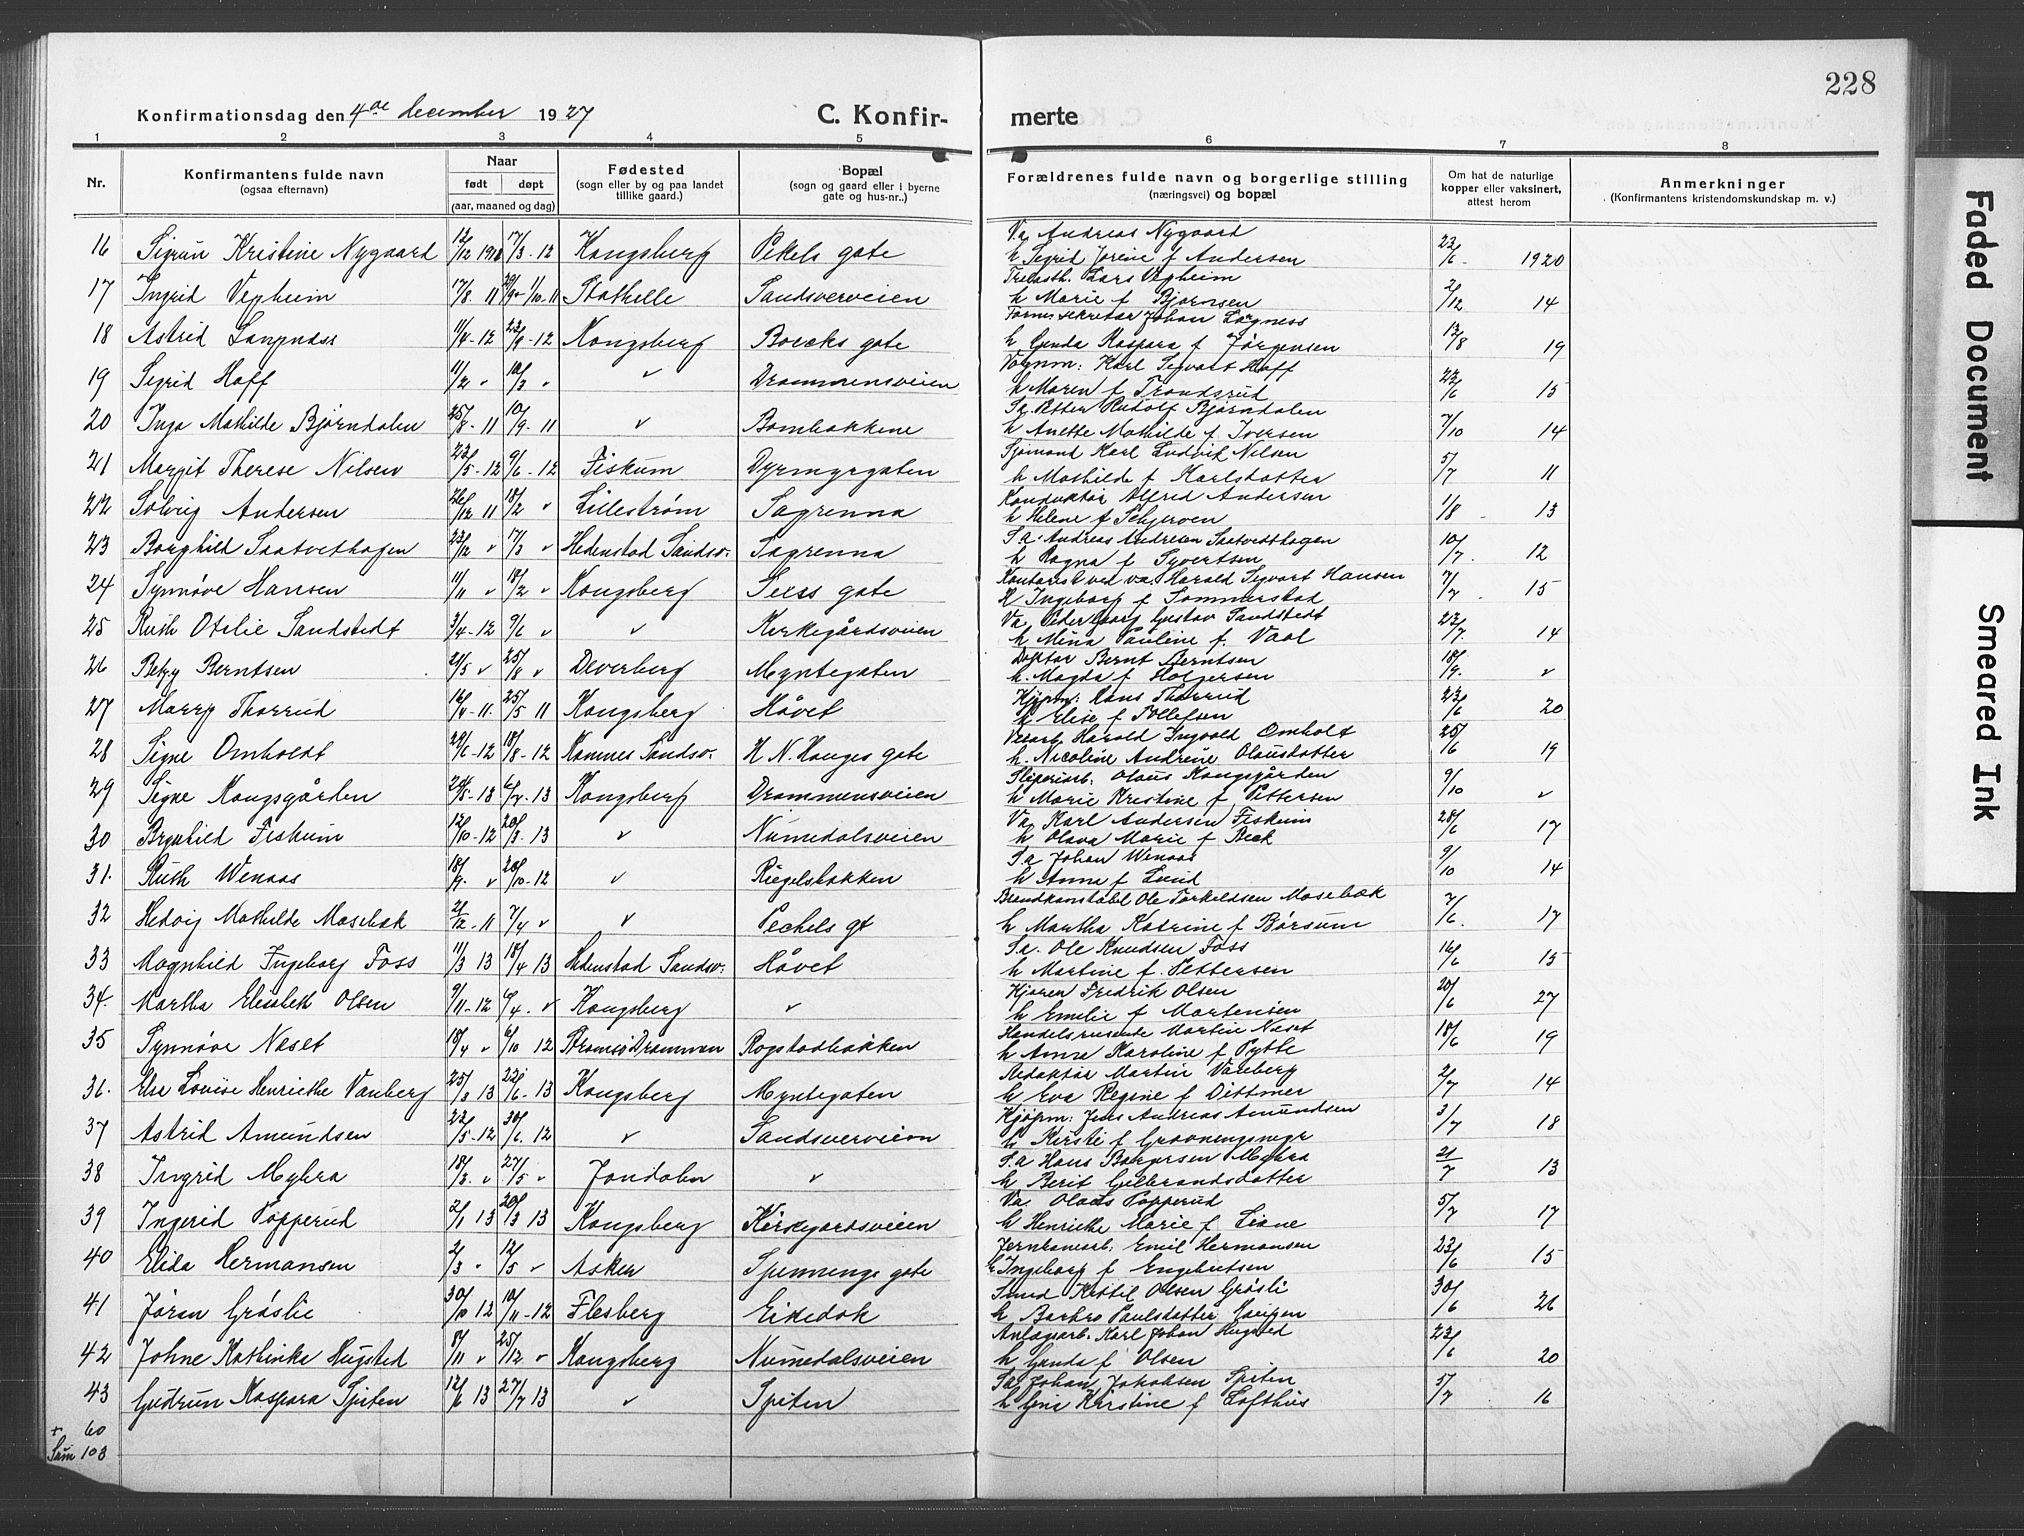 228
Konfirmationsdag den 4de december 1927 C. Konfirmerte
1 2 3 4 5 6 7 8
Nr. Konfirmantens fulde navn (ogsaa efternavn) Naar født døpt (aar, maaned og dag) Fødested (sogn eller by og paa landet tillike gaard.) Bopæl (sogn og gaard eller i byerne gate og hus-nr..) Forældrenes fulde navn og borgerlige stilling (næringsvei) og bopæl Om hat de naturlige kopper eller vaksinert, attest herom Anmerkninger (Konfirmantens kristendomskundskap m. v.)
16 Sigrun Kristine Nygaard 12/12 1911 17/3 - 12 Kongsberg Pekels gate Va. Andreas Nygaard
h. Sigrid Jorine f Andersen 23/6 - 1920
17 Ingrid Vegheim 17/8 11 1/10 - 11 Stathelle Sandsverveien Trelasth. Lars Vegheim
h Marie f Bjørnsen 2/12 14
18 Astrid Langnæss 11/4 - 12 23/9 - 12 Kongsberg Boecks gate Johan Lagness
h Gunda Kaspara f Jørgensen 13/8 19
19 Sigrid Hoff 11/2 " 10/3 " " Drammensveien Vognm: Karl Sigvart Hoff
h Maren f Trondsrud 23/6 15
20 Inga Mathilde Bjørndalen 25/8 - 11 10/9 - 11 " Bombakkene Sa. Petter Rudolf Bjørndalen
h Anette Mathilde f Iversen 7/10 14
21 Margit Therese Nilsen 23/5 - 12 9/6 - 12 Fiskum Dyrmyrgaten Sjømand Karl Ludvik Nilsen
h Mathilde f Karlsdatter 5/7 11
22 Solveig Andersen 26/12 11 18/2 " Lillestrøm Sagrenna Konduktør Alfred Andersen
h Helene f Schjerven 1/8 - 13
23 Borghild Saatvethagen 23/12 " 17/3 " Hedenstad Sandsv. Sagrenna Sa. Andreas Andresen Saatvedthagen
h Ragna f Syvertsen 10/7. 12
24 Synnøve Hansen 11/11 " 18/2 " Kongsberg Seess gate Kontorist ved va. Harald Sigvart Hansen
h Ingeborg f Sommerstad 7/7. 15
25 Ruth Otelie Sandstedt 3/4 - 12 9/6 " " Kirkegårdsveien Va. Gustav Sandstedt
h Mina Pauline f. Vaal 23/7 14
26 Berntsen 21/5 " 25/8 " Deverberg Myntegaten Doktor Bernt Berntsen
h. Magda f Holgersen 18/9. "
27 Marry Thorrud 16/4 - 11. 25/5 11 Kongsberg Håvet Kjøpm: Hans Thorrud
h Elise f Tollefsen 23/6 20
28 Signe Omholdt 29/6 - 12 18/8 - 12 Komnes Sandsv. H. N. Hauges gate Harald Ingvald Omholt
h. Nicoline Andrine Olausdatter 25/6 19
29 Signe Kongsgården 24/5 - 13 6/7 - 13 Kongsberg Drammensveien Sliperiarb: Olaus Kongsgården
h Marie Kristine f Pettersen 9/10 "
30 Brynhild Fiskum 12/10 - 12 20/3. 13 " Numedalsveien Va. Karl Andersen Fiskum
h Olava Marie f Beck 28/6 17
31. Ruth Wenaas 18/9. " 20/10 - 12 " Riegelsbakken Sa Johan Wenaas
h Anna f Lund 9/10 14
32 Hedvig Mathilde Masebæk 21/12 - 11 7/4 " " Pechels gt Brandkonstabel Ole Torkeldsen Masebæk
h Martha Katrine f Børsum 7/6. 17
33 Magnhild Ingeborg Foss 11/3 13 18/4 13 Hedenstad Sandsv. Håvet Sa. Ole Knudsen Foss
h Martine f. Pettersen 16/6 15
34. Martha Elisabeth Olsen 9/11 - 12 6/4. " Kongsberg " Fredrik Olsen
h Emelie f Mortensen 20/6 27
35 Synnøve Næset 18/4 " 6/10 12 Strømsø Drammen Rogstadbakken Handelsreisende Martin Næset
h Anna Karoline f Pytte 18/6 19
36. Else Lovise Henriette Vanberg 25/3 13 22/6 - 13 Kongsberg Myntegaten Redaktør Martin Vanberg
h Eva Regine f Dittmer 2/7 14
37 Astrid Amundsen 23/5 - 12 30/6. 12 " Sandsverveien Kjøpm: Jens Andreas Amundsen
h. Kirsti f Gravningsmyr 3/7 18
38 Ingrid Myhra 18/3. " 27/5 " Jondalen " Sa Hans Borgersen Myhra
h Berit Gulbrandsdatter 21/7 13
39 Ingerid Topperud 2/1 13 20/3 13 Kongsberg Kirkegardsveien Va. Olaus Topperud
h Henriette Marie f Liane 5/7 17
40 Elida Hermansen 2/3 " 12/5 " Asker Spennings gate Jernbanearb. Emil Hermansen
h Ingeborg f Engebretsen 23/6 15
41 Jøran Grøslie 30/10 12 10/11 - 12 Flesberg Eikedok Smed Kittil Olsen Grøsli
h Barbro Paulsdatter 30/6 26
42 Johne Kathinka Hugsted 8/11 " 25/12 " Kongsberg Numedalsveien Anlægsarb. Karl Johan Hugsted
h Gunda f Olsen 23/6 20
43 Gudrun Kaspara Spiten 12/6 13 27/7 13 " Spiten Sa Johan Jakobsen Spiten
h. Gina Kirstine f Lofthus 5/7 16
+ 60
Sum 103
Faded Document
Smeared Ink